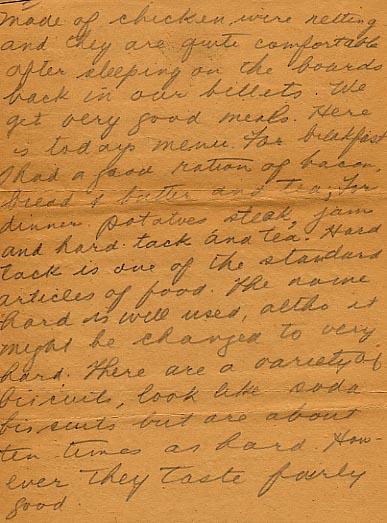 made of chicken wire netting
and they are quite comfortable
after sleeping on the boards
back in our billets. We
get very good meals. Here
is todays menu. For breakfast
I had a good ration of bacon,
bread & butter and tea; for
dinner, potatoes steak, jam
and hard tack and tea. Hard
tack is one of the standard
articles of food. The name
hard is well used, altho it
might be changed to very
hard. There are a variety of
biscuits, look like soda
biscuits but are about
ten times as hard. How-
ever they taste fairly
good.